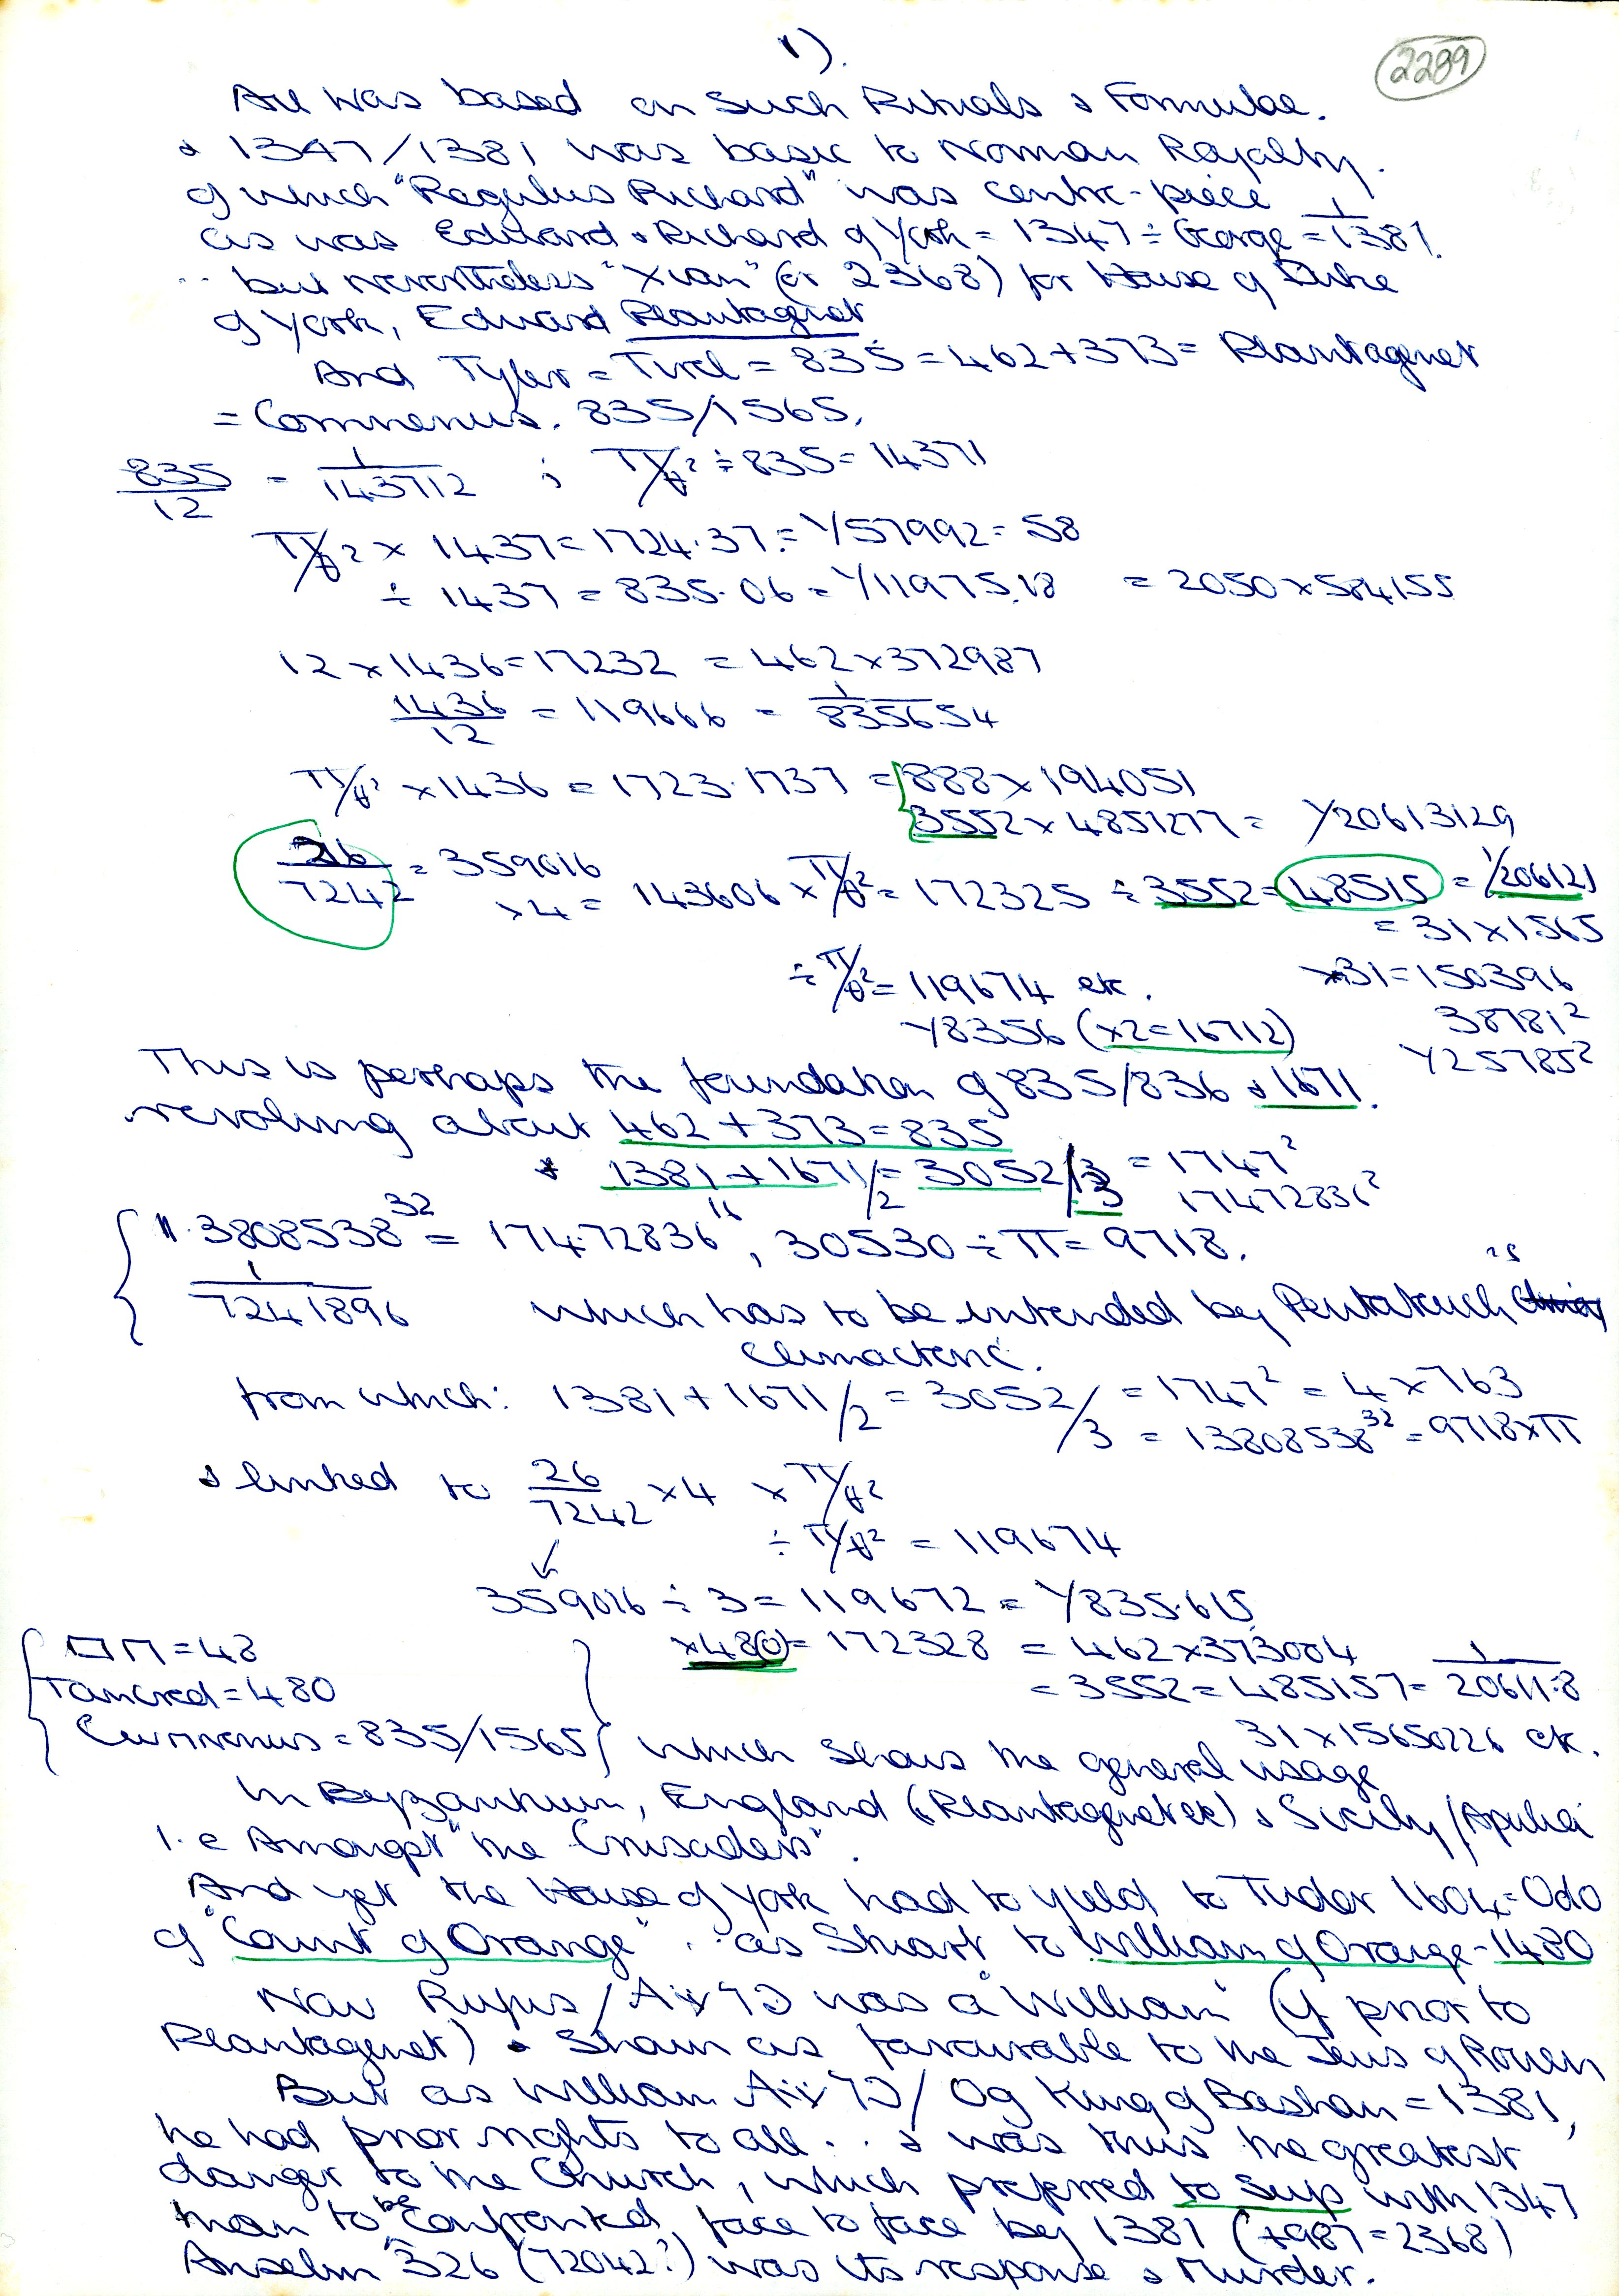 1).
2289
All was based on such Rituals & Formulae.
& 1347/1381 was basic to Norman Royalty.
of which "Regulus Richard" was centre-piece
as was Edward & Richard of York = 1347 ÷ George = 1/1381.
.. but nevertheless "Xian" (or 2368) for House of Duke
of York, Edward Plantagenet
And Tyler = Tirel = 835 = 462+373 = Plantagenet
= Comnenus. 835/1565.
835/12 = 1/143712 ; π/θ² ÷ 835 = 14371
π/θ² × 1437 = 1724.37 = 1/57992 = 58
÷ 1437 = 835.06 = 1/11975.18 = 2050 × 584155
12 × 1436 = 17232 = 462 × 372987
1436/12 = 119666 = 1/835654
π/θ² × 1436 = 1723.1737 = 888 × 194051
3552 × 4851277 = 1/20613129
26/7242 = 359016
×4 = 143606 × π/θ² = 172325 ÷ 3552 = 48515 = 1/206121
= 31 × 1565
÷ π/θ² = 119674 etc. ×31 = 150396
1/8356 (×2 = 16712) 38781²
1/257852
This is perhaps the foundation of 835/836 & 1671.
revolving about 462 + 373 = 835
& 1381 + 1671/2 = 3052/3 = 1747²
17472836²
1.3808538³² = 174.72836¹⁶, 30530 ÷ π = 9718.
1/7241896 which has to be intended by Pentateuch is
Climacteric.
from which: 1381 + 1671/2 = 3052/3 = 1747² = 4 × 763
= 13808538³² = 9718 × π
& linked to 26/7242 × 4 × π/θ²
÷ π/θ² = 119674
359016 ÷ 3 = 119672 = 1/835.615
×480 = 172328 = 462 × 373004
= 3552 = 485157 = 1/20611.8
31 × 15650226 etc.
= 48
Tancred = 480
Comnenus = 835/1565 which shows the general usage
in Byzantium, England (Plantagenet etc) & Sicily/Apulia
i.e Amongst "the Crusaders".
And yet the House of York had to yield to Tudor 1604 = Odo
of "Count of Orange" .. as Stuart to William of Orange - 1480
Now Rufus / was a "William" (if prior to
Plantagenet) & Shown as favourable to the Jews of Rouen
But as William / Og King of Bashan = 1381,
he had prior rights to all ... & was thus the greatest
danger to the Church, which preferred to sup with 1347
than to be "Confronted" face to face by 1381 (+987 = 2368)
Anselm 326 (72042?) was its response & Murder.